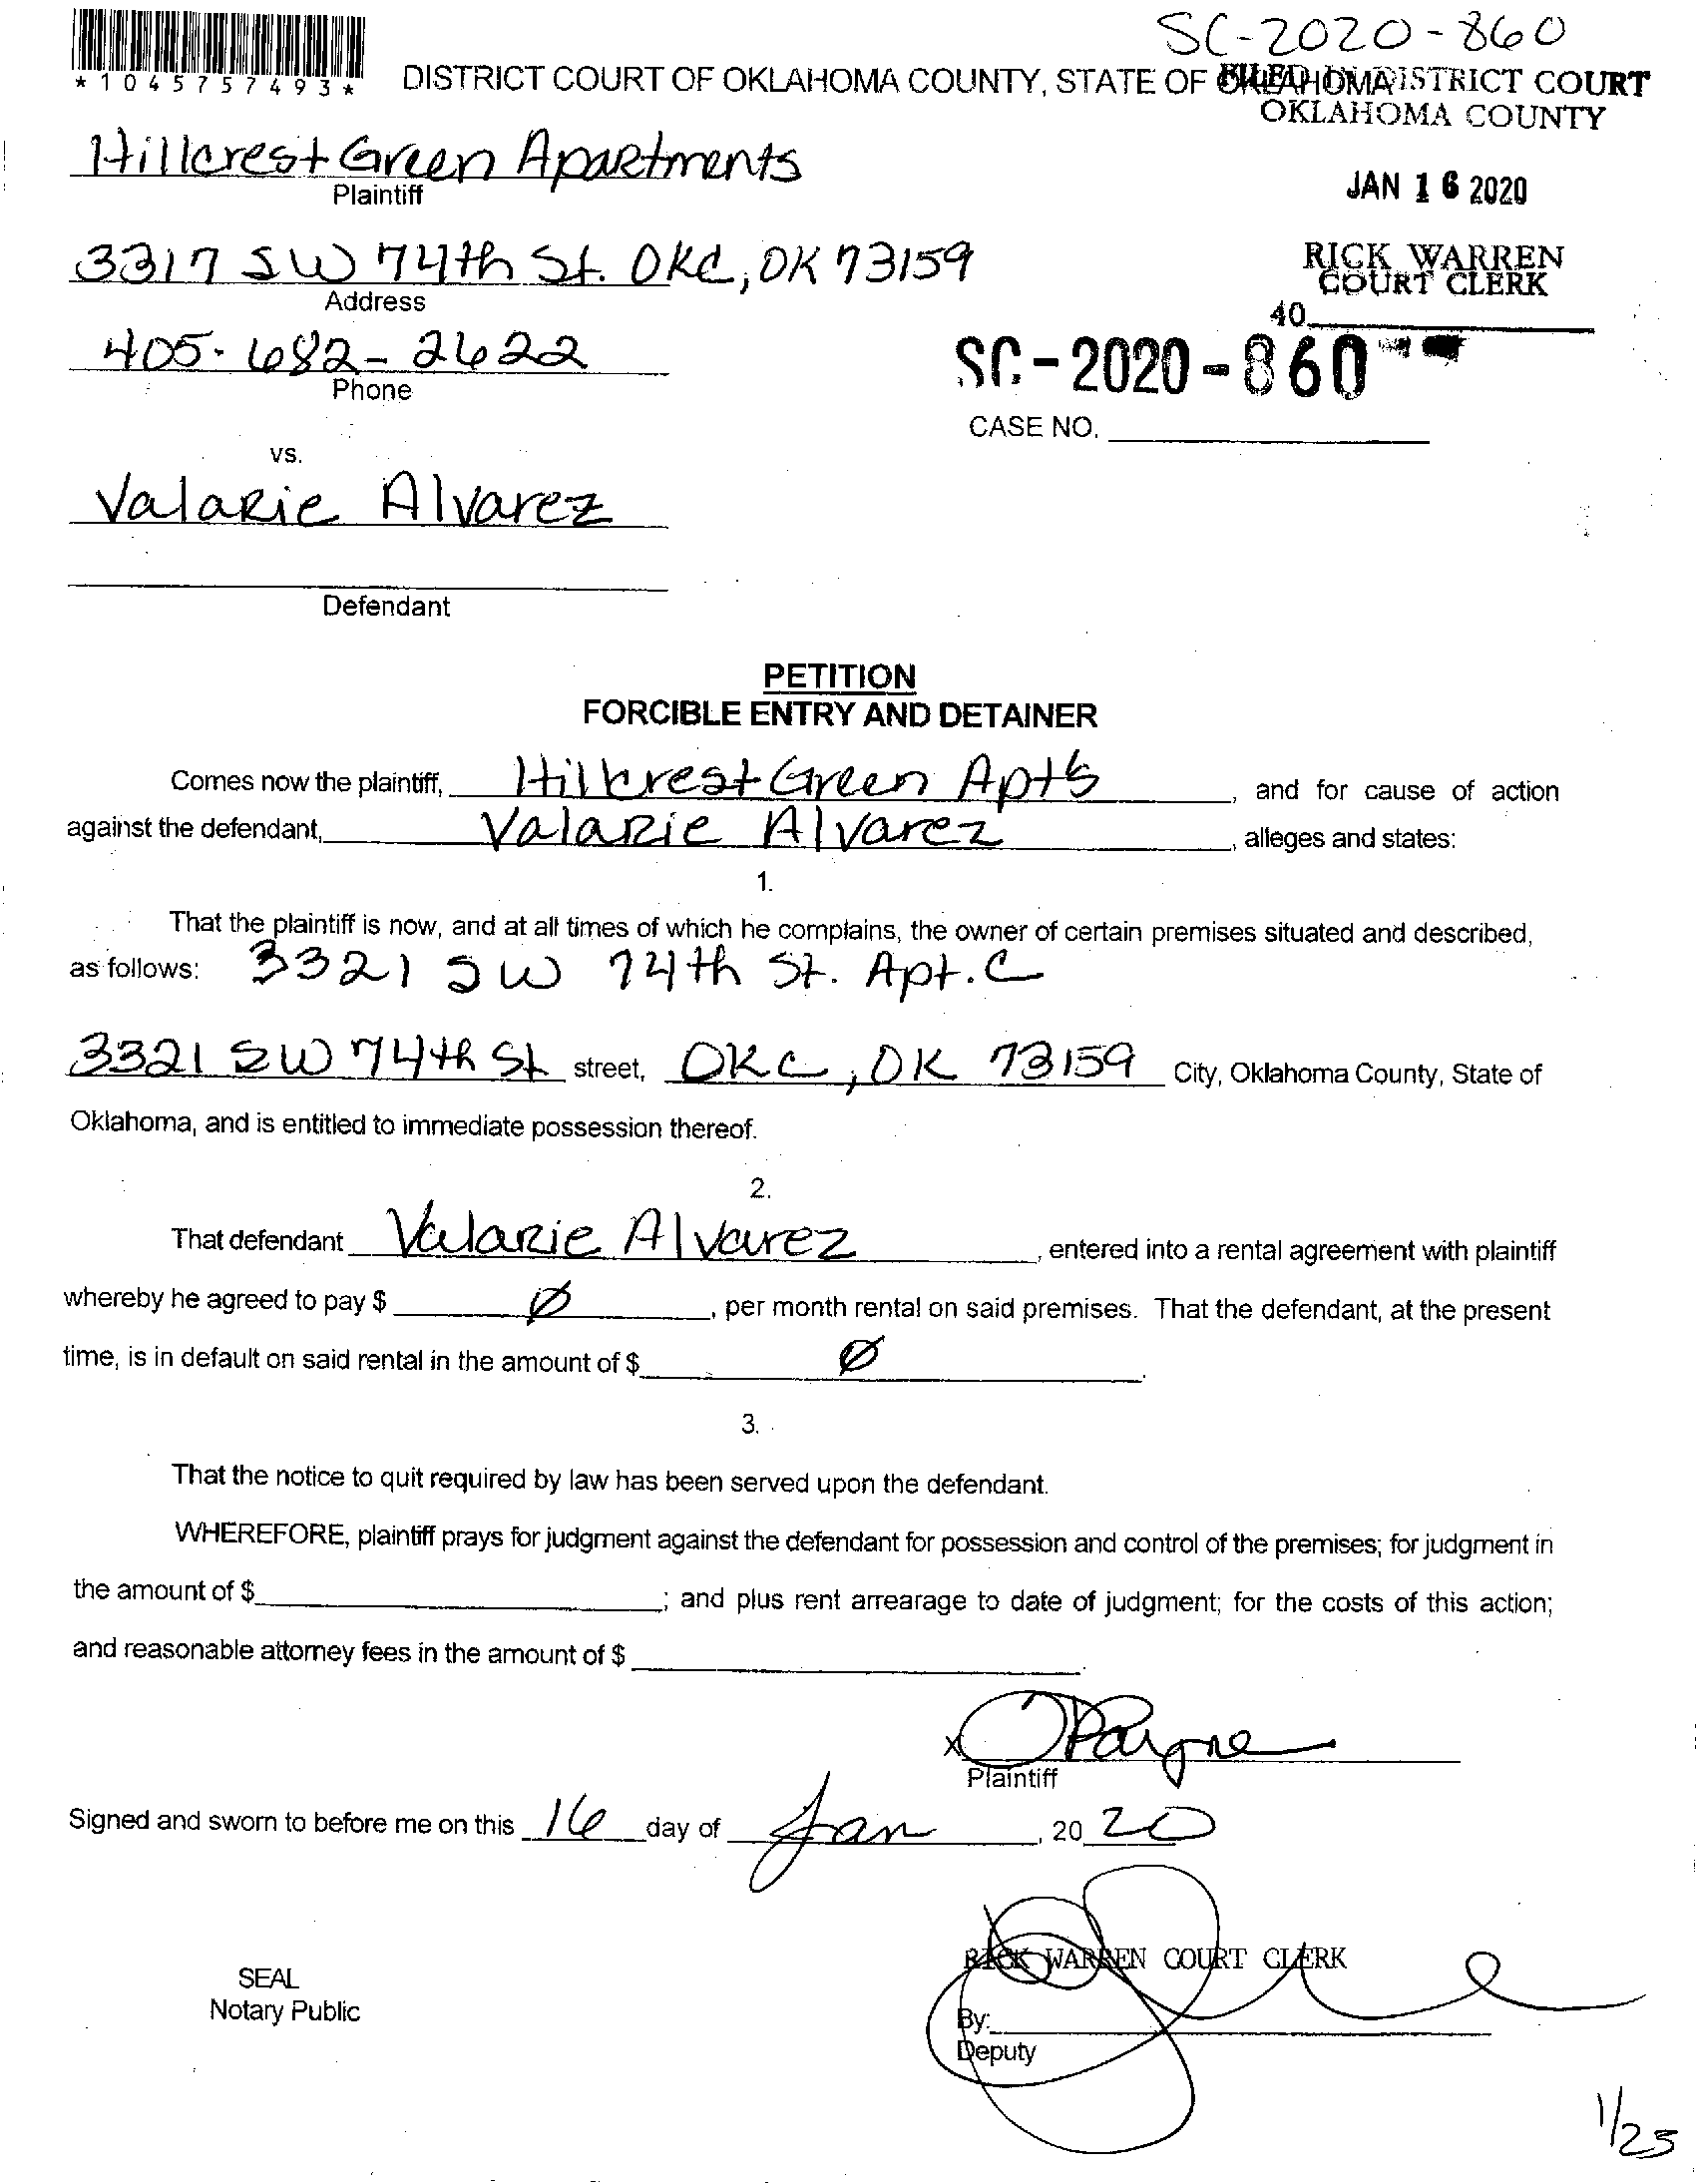 SC-2020-860
*1045757493*
DISTRICT COURT OF OKLAHOMA COUNTY, STATE OF OKLAHOMA
FILED IN DISTRICT COURT
OKLAHOMA COUNTY
Hillcrest Green Apartments
Plaintiff
JAN 16 2020
3317 SW 74th St. OKC, OK 73159
Address
RICK WARREN
COURT CLERK
40
405-682-2622
Phone
SC-2020-860
CASE NO.
vs.
Valarie Alvarez
Defendant
PETITION
FORCIBLE ENTRY AND DETAINER
Comes now the plaintiff, Hillcrest Green Apts, and for cause of action
against the defendant, Valarie Alvarez, alleges and states:
1.
That the plaintiff is now, and at all times of which he complains, the owner of certain premises situated and described,
as follows: 3321 SW 74th St. Apt. C
3321 SW 74th St street, OKC, OK 73159 City, Oklahoma County, State of
Oklahoma, and is entitled to immediate possession thereof.
2.
That defendant Valarie Alvarez, entered into a rental agreement with plaintiff
whereby he agreed to pay $ Ø, per month rental on said premises. That the defendant, at the present
time, is in default on said rental in the amount of $ Ø.
3.
That the notice to quit required by law has been served upon the defendant.
WHEREFORE, plaintiff prays for judgment against the defendant for possession and control of the premises; for judgment in
the amount of $ ; and plus rent arrearage to date of judgment; for the costs of this action;
and reasonable attorney fees in the amount of $ .
x OPayne
Plaintiff
Signed and sworn to before me on this 16 day of Jan, 2020
RICK WARREN COURT CLERK
SEAL
Notary Public
By:
Deputy
1/23